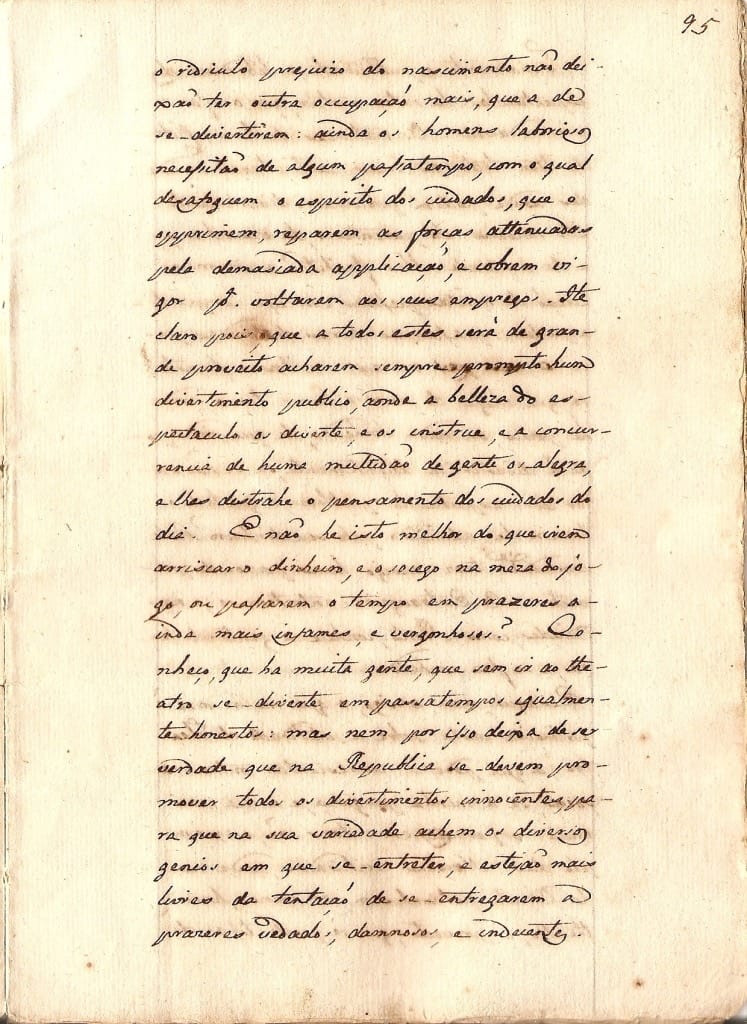 95
o ridiculo prejuizo do nascimento naõ dei-
xaõ ter outra occupaçaõ mais, que a de
se-divertirem: ainda os homens laboriosos
necessitaõ de algum passatempo, com o qual
desafoguem o espirito dos cuidados, que o
opprimem, reparem as forças attenuadas
pela demasiada applicaçaõ, e cobrem vi-
gor pª. voltarem aos seus empregos. He
claro pois, que a todos estes será de gran-
de proveito acharem sempre prompto hum
divertimento publico, aonde a belleza do es-
pectaculo os diverte, e os instrue, e a concur-
rencia de huma multidaõ de gente os-alegra,
e lhes distrahe o pensamento dos cuidados do
dia. E naõ he isto melhor do que irem
arriscar o dinheiro, e o socego na meza do jo-
go, ou passarem o tempo em prazeres a-
inda mais infames, e vergonhosos? Co-
nheço, que ha muita gente, que sem ir ao the-
atro se-diverte em passatempos igualmen-
te honestos: mas nem por isso deixa de ser
verdade que na Republica se-devem pro-
mover todos os divertimentos innocentes, pa-
ra que na sua variedade achem os diversos
genios em que se-entreter, e estejaõ mais
livres da tentaçaõ de se-entregarem a
prazeres vedados, damnosos, e indecentes.